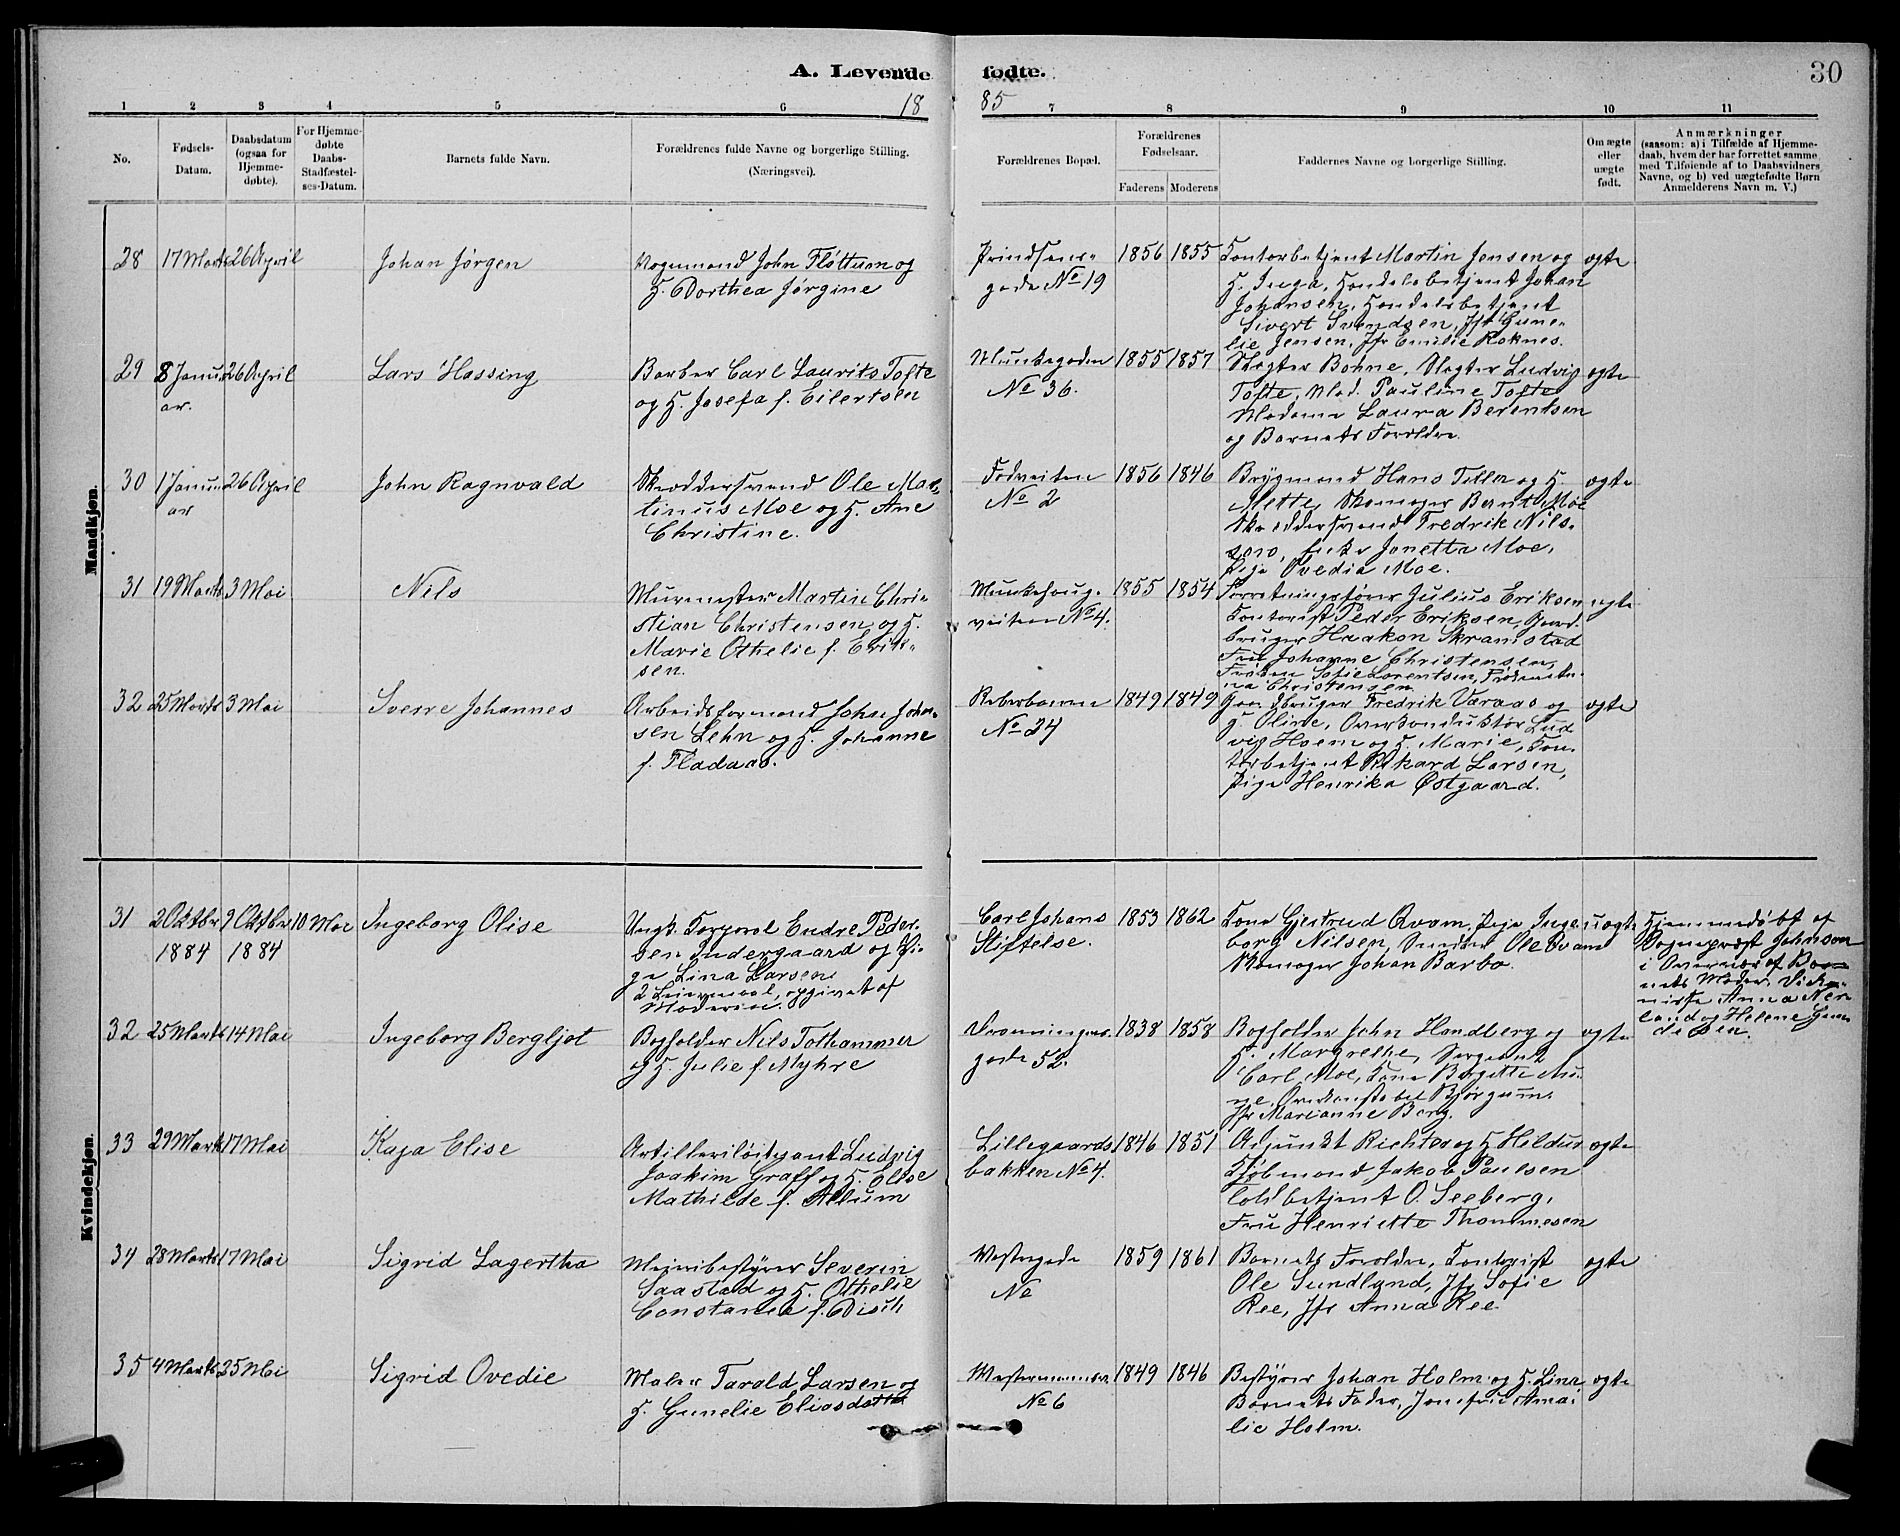 A. Levende fødte.
30
18 85
1 2 3 4 5 6 7 8 9 10 11
No.
Fødsels-
Datum.
Daabsdatum
(ogsaa for
Hjemme-
døbte).
For Hjemme-
døbte
Daabs-
Stadfæstel-
ses-Datum.
Barnets fulde Navn.
Forældrenes fulde Navne og borgerlige Stilling.
(Næringsvei).
Forældrenes Bopæl.
Forældrenes
Fødselsaar.
Faderens Moderens
Faddernes Navne og borgerlige Stilling.
Om ægte
eller
uægte
født.
Anmærkninger
(saasom: a) i Tilfælde af Hjemme-
daab, hvem der har forrettet samme
med Tilføiende af to Daabsvidners
Navne, og b) ved uægtefødte Børn
Anmelderens Navn m. V.)
Mandkjøn.
28 17 Marts 26 April
Johan Jørgen
Vognmand John Fløttum og
H. Dorthea Jørgine
Prindsens-
gade No 19
1856 1855
Kontorbetjent Martin Jensen og
H. Inga, Handelsbetjent Johan
Johansen, Handelsbetjent
Sivert Svendsen, Jfr Gune-
lie Jensen, Jfr Emilie Roknes.
ægte
29 8 Janu- 26 April
ar.
Lars Hassing
Barber Carl Laurits Tofte
og H. Josefa f. Eilertsen
Munkegaden
No 36.
1855 1857
Slagter Bohne, Slagter Ludvig
Tofte, Mad. Pauline Tofte
Madame Laura Berentsen
og Barnets Forældre.
ægte
30 1 Janu- 26 April
ar
John Ragnvald
Skræddersvend Ole Mar-
tinus Moe og H. Ane
Christine.
Fodveiten
No 2
1856 1846
Brygmand Hans Tiller og H.
Mette, Skomager Bernt Moe
Skræddersvend Fredrik Nils-
son, Enke Janetta Moe,
Pige Ovedia Moe.
ægte
31 19 Marts 3 Mai
Nils
Murmester Martin Chri-
stian Christensen og H.
Marie Othelie f. Erik-
sen.
Munkehaug-
veiten No 4.
1855 1854
Forretningsfører Julius Eriksen
Kontorist Peder Eriksen, Gaard-
bruger Haakon Skramstad
Fru Johanne Christensen,
Frøken Sofie Lorentsen,
Christensen
ægte
32 25 Marts 3 Mai
Sverre Johannes
Arbeidsformand John Johan-
sen Lehn og H. Johanne
f. Fladaas.
No 24
1849 1849
Gaardbruger Fredrik Varaas og
H. Oline, Overkonduktør Lud
vig Hoem og H. Marie, Kon-
torbetjent Rikard Larsen,
Pige Henrika Østgaard.
ægte
Kvindekjøn.
31 2 Oktbr 9 Oktbr 10 Mai
1884 1884
Ingeborg Olise
Ungk. Korporal Endre Peder-
sen Indergaard og Pi-
ge Lina Larsen
2 Leiermaal, opgivet af
Moderen.
Carl Johans
Stiftelse.
1853 1862
Kone Gjertrud Qvam, Pige Inge-
borg Nilsen, Snedker Ole Qvam
Skomager Johan Barbo.
uægte
Hjemmedøbt af
Sogneprest Johnson
i Overvær af Bar-
nets Moder,
Anna Ner-
land og Helene Gun-
dersen.
32 25 Marts 14 Mai
Ingeborg Bergljot
Bogholder Nils Tolhammer
og H. Julie f. Myhre
Dronningens-
gade 52.
1838 1858
Bogholder John Handberg og
H. Margrethe, Sergeant
Carl Moe, Kone Birgitte
Overkonstabel Bjørgum.
Jfr Marianne Berg.
ægte
33 29 Marts 17 Mai
Kaja Elise
Artilleriløitenant Ludvig
Joakim Graff og H. Elise
Mathilde f. Allum
Lillegaards
bakken No 4.
1846 1851
Adjunkt Richter og H. Hildur
Kjøbmand Jakob Paulsen
Toldbetjent O. Seeberg,
Fru Henriette Thommesen
ægte
34 28 Marts 17 Mai
Sigrid Lagertha
Meieribestyrer Severin
Saastad og H. Othelie
Constance f. Disch
Vestregade
No
1859 1861
Barnets Forældre, Kontorist
Ole Sundland, Jfr Sofie
Ree, Jfr Anna Ree.
ægte
35 4 Marts 25 Mai
Sigrid Ovedie
Maler Tarald Larsen og
H. Gunelie Eliasdatter
No 6
1849 1846
Bestyrer Johan Holm og H. Lina
Barnets Fader, Jomfru Ama-
lie Holm.
ægte